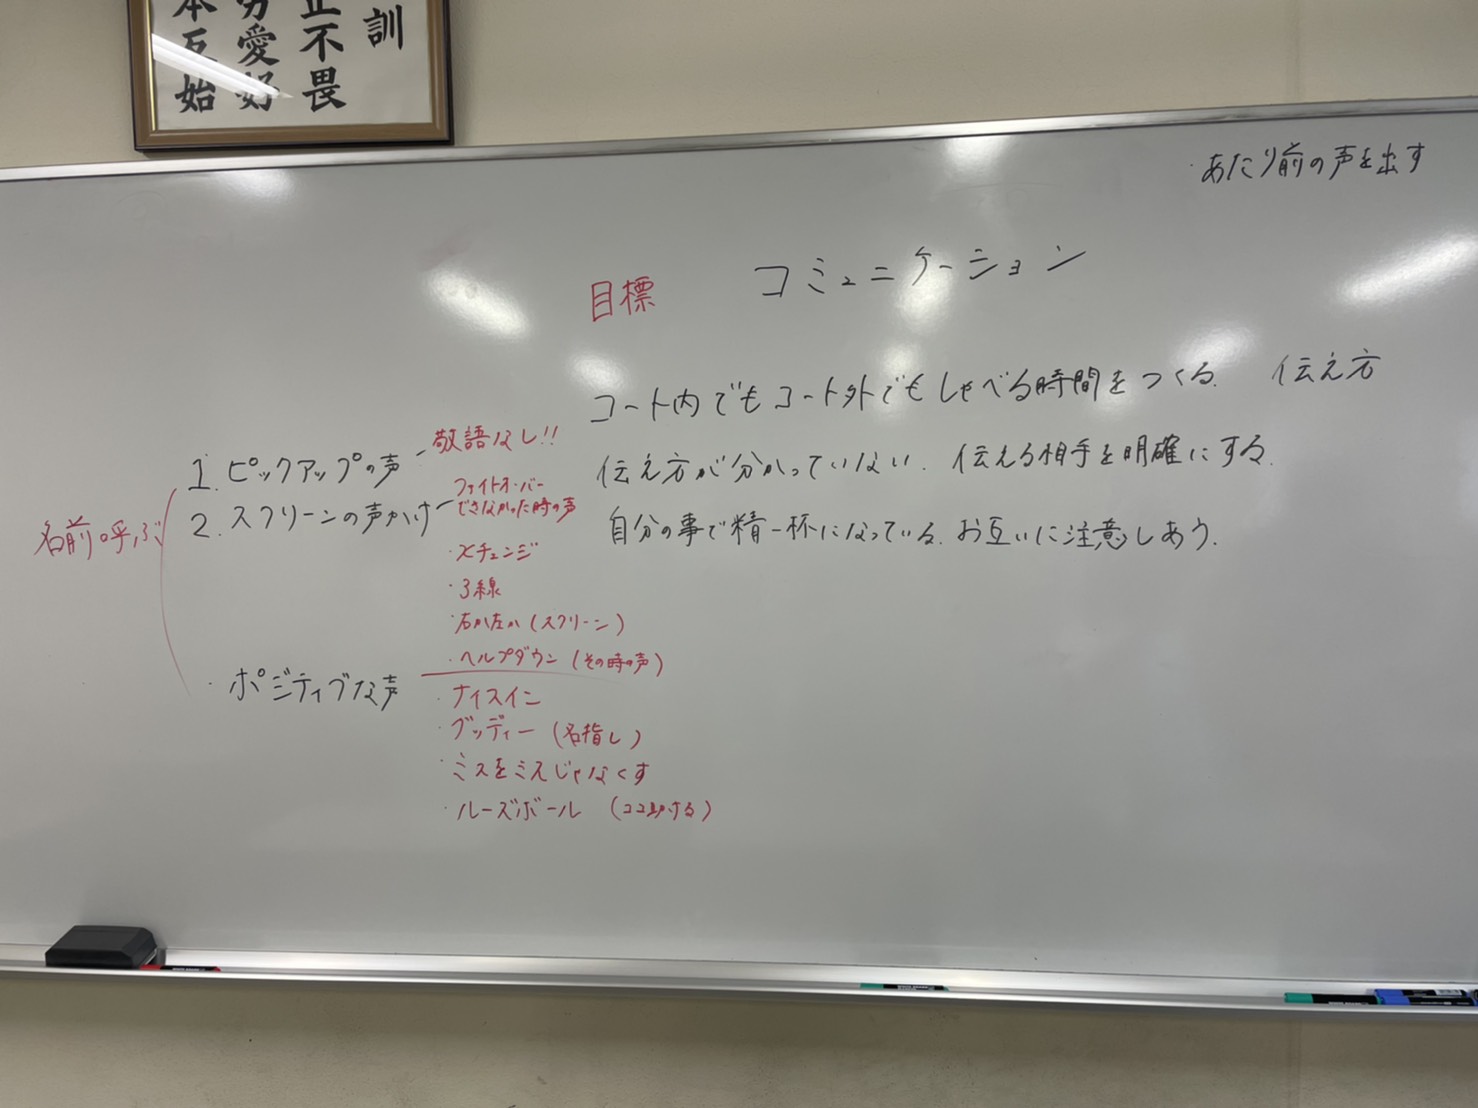 訓
正不畏
労愛好
本互始
・あたり前の声を出す
目標 コミュニケーション
コート内でもコート外でもしゃべる時間をつくる. 伝え方
伝え方が分かっていない. 伝える相手を明確にする.
自分の事で精一杯になっている. お互いに注意しあう.
名前呼ぶ
1. ピックアップの声 - 敬語なし!!
2. スクリーンの声かけ - ファイトオーバー
できなかった時の声
・xチェンジ
・3線
・右か左か(スクリーン)
・ヘルプダウン(その時の声)
・ポジティブな声
・ナイスイン
・グッディー(名指し)
・ミスをミスじゃなくす
・ルーズボール (ココ助ける)